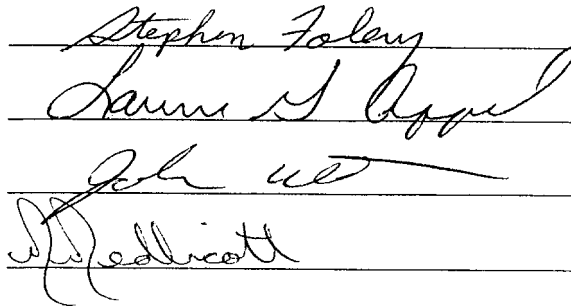 Stephen Foley
Laurie G Appel
John
Medlicott